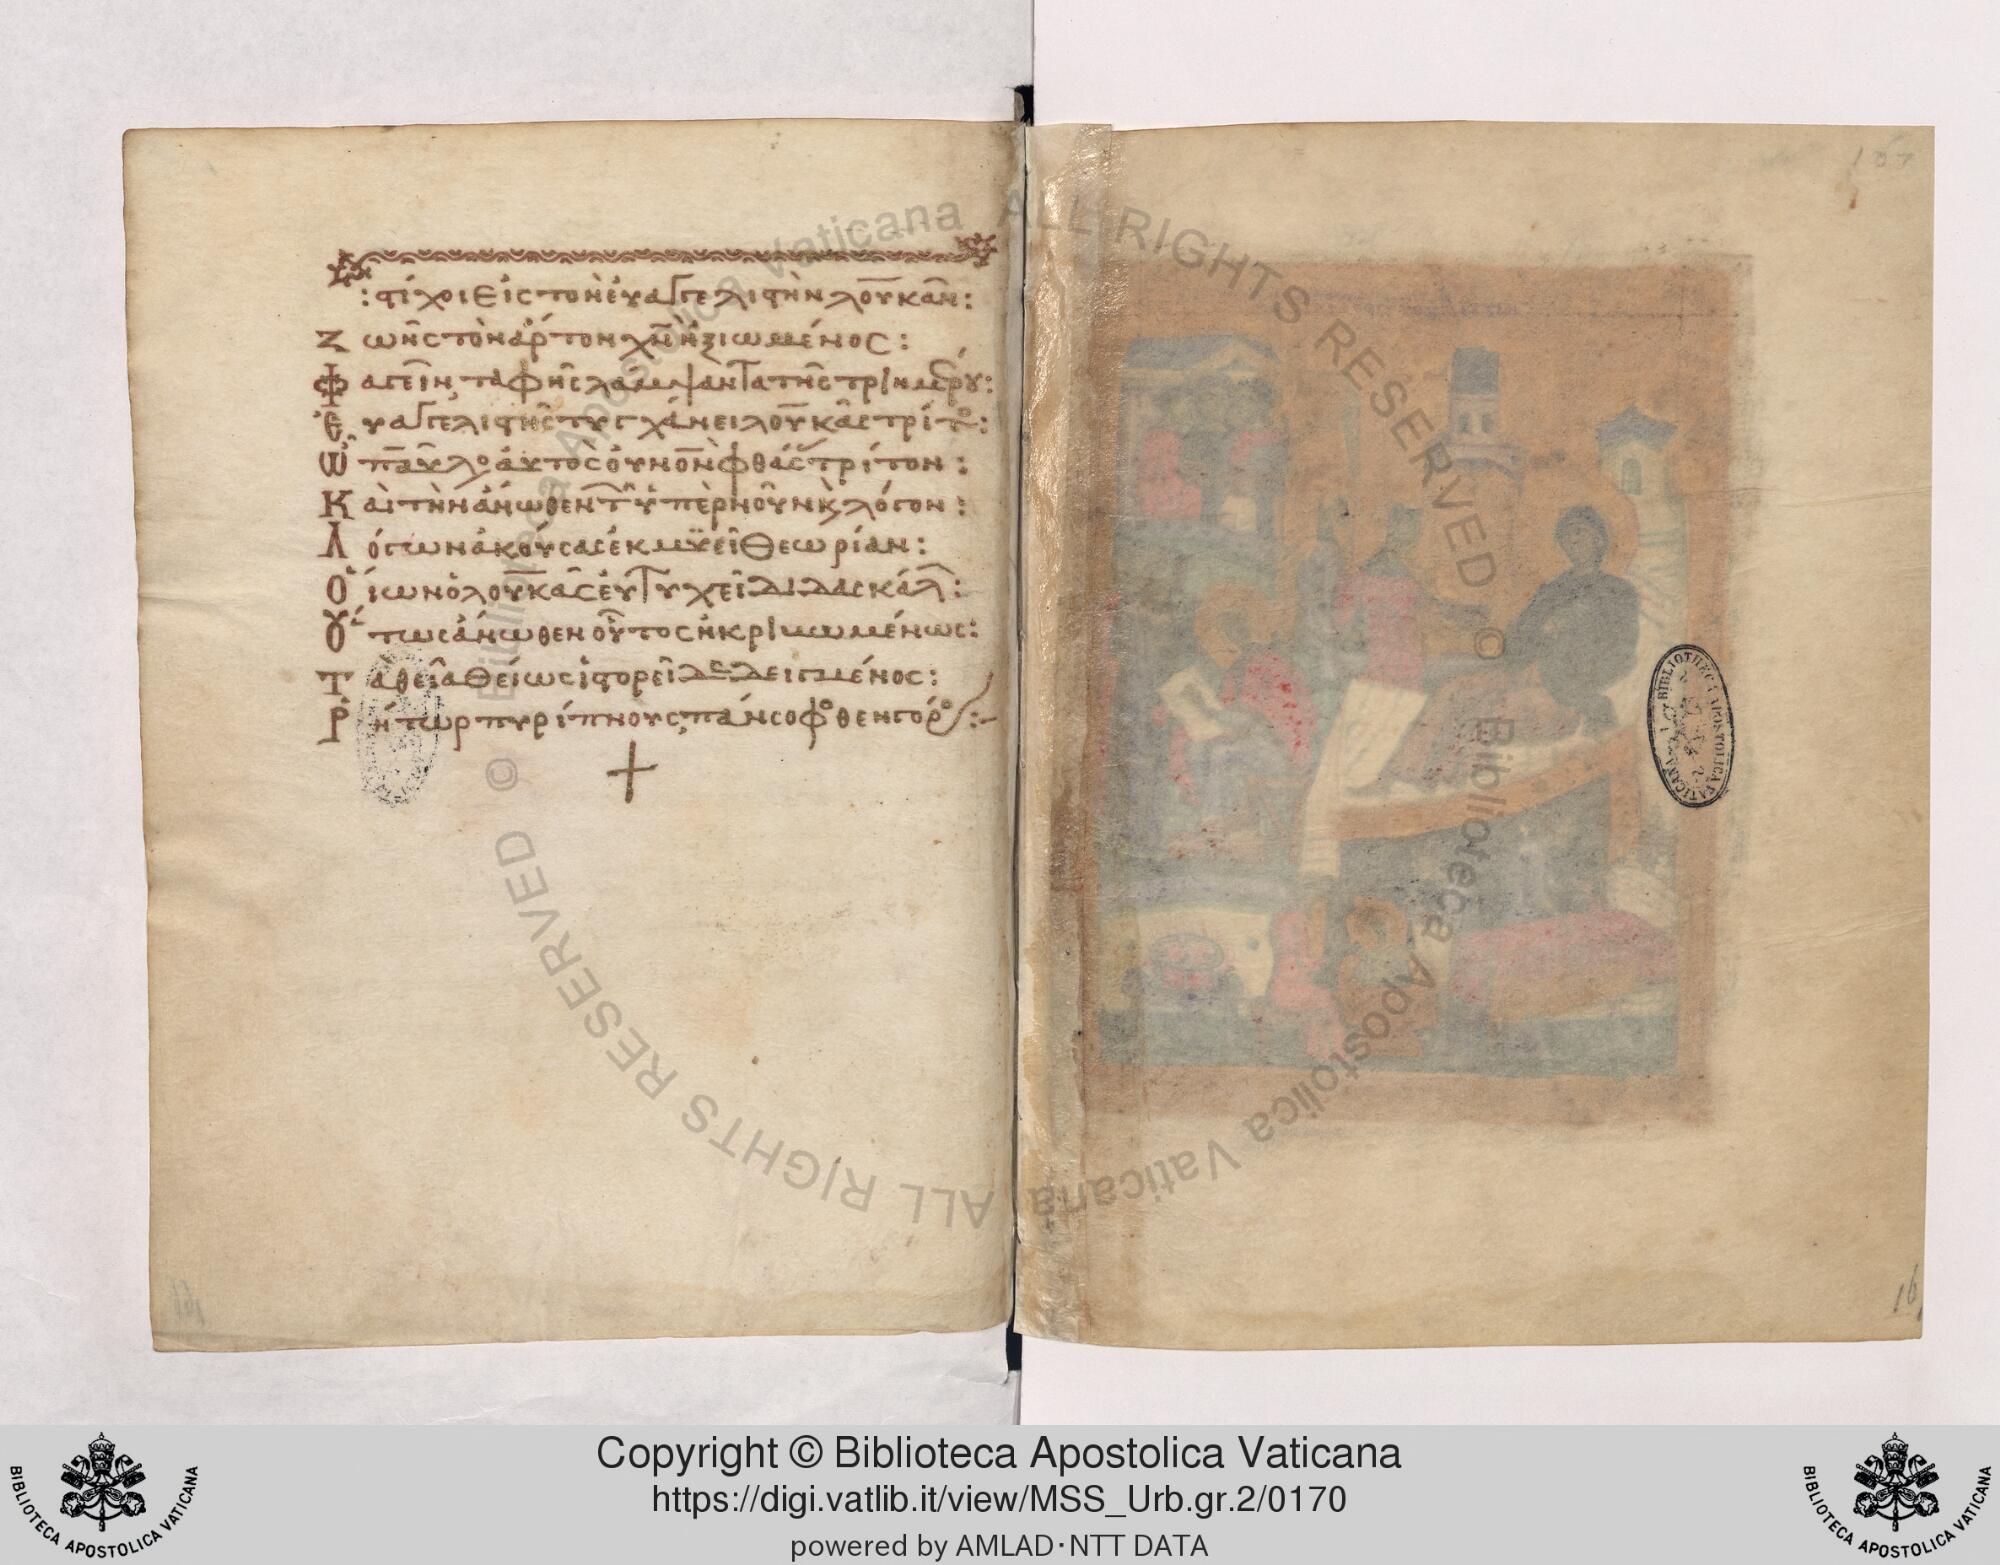 : στίχοι εἰς τὸν εὐαγγελιστὴν λουκᾶν :
Ζωῆς τὸν ἄρτον χν ἠξιωμένος :
Φαγεῖν, ταφῆς λάμψαντα τῆς τριημέρου :
Εὐαγγελιστὴς τυγχάνει λουκᾶς τρίτος :
παῦλος αὐτὸς οὐνον φθάς τρίτον :
Καὶ τὴν ἄνωθεν τὴν ὑπὲρ νοῦν κ λόγον :
Λόγων ἀκούσας ἐκμυεῖ θεωρίαν :
Οἵων ὁ λουκᾶς εὐτυχεῖ διδασκάλ :
Οὕτως ἄνωθεν οὗτος ἠκριβωμένως :
Τὰ θεῖα θείως ἱστορεῖ δεδειγμένος :
Ῥήτωρ πυρίπνους, πάνσοφος θεηγόρος :
+
BIBLIOTHECA APOSTOLICA VATICANA
© Biblioteca Apostolica Vaticana ALL RIGHTS RESERVED
© Biblioteca Apostolica Vaticana ALL RIGHTS RESERVED
Copyright © Biblioteca Apostolica Vaticana
https://digi.vatlib.it/view/MSS_Urb.gr.2/0170
powered by AMLAD·NTT DATA
BIBLIOTECA APOSTOLICA VATICANA
BIBLIOTECA APOSTOLICA VATICANA